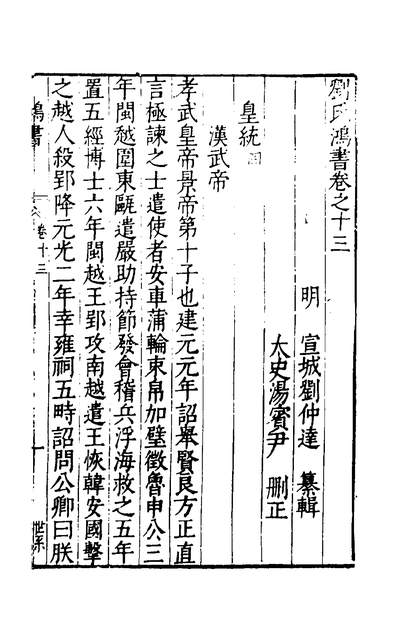 劉氏鴻書卷之十三
明　宣城劉仲達　纂輯
太史湯賓尹　删正
皇統四
漢武帝
孝武皇帝景帝第十子也建元元年詔舉賢良方正直
言極諫之士遣使者安車蒲輪束帛加璧徵魯申公三
年閩越圍東甌遣嚴助持節發會稽兵浮海救之五年
置五經博士六年閩越王郢攻南越遣王恢韓安國擊
之越人殺郢降元光二年幸雍祠五畤詔問公卿曰朕
鴻書
卷十三
世系